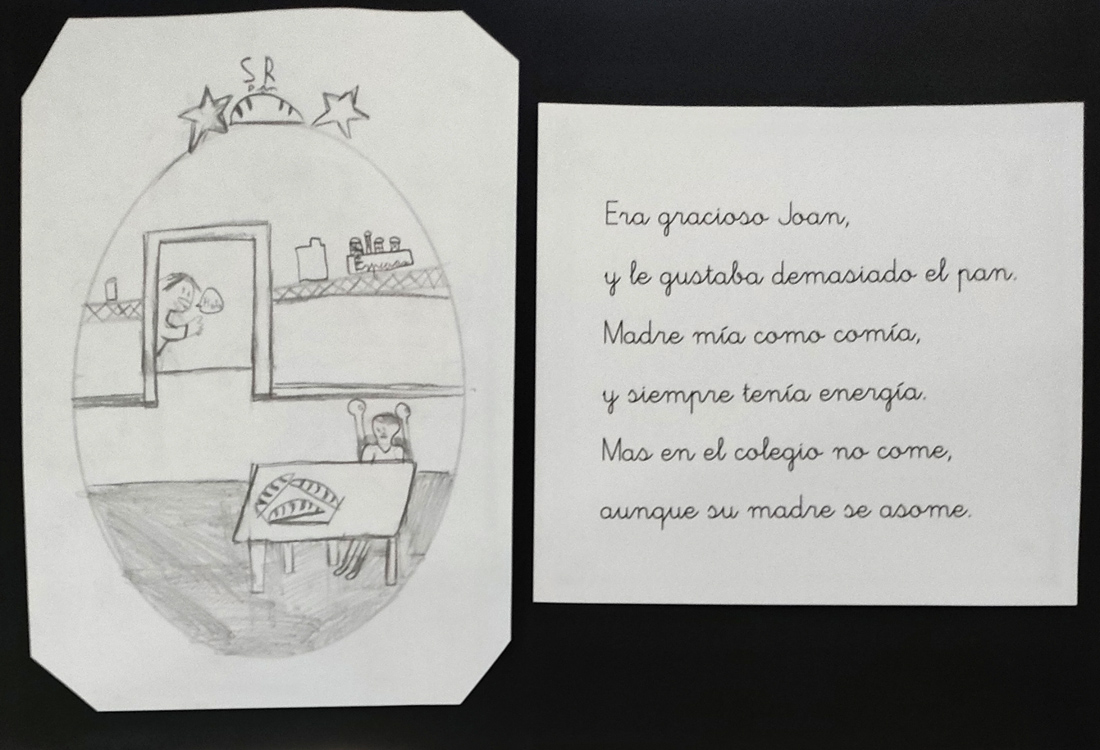 SR
Pan
Hola
Especias
Era gracioso Joan,
y le gustaba demasiado el pan.
Madre mía como comía,
y siempre tenía energía.
Mas en el colegio no come,
aunque su madre se asome.